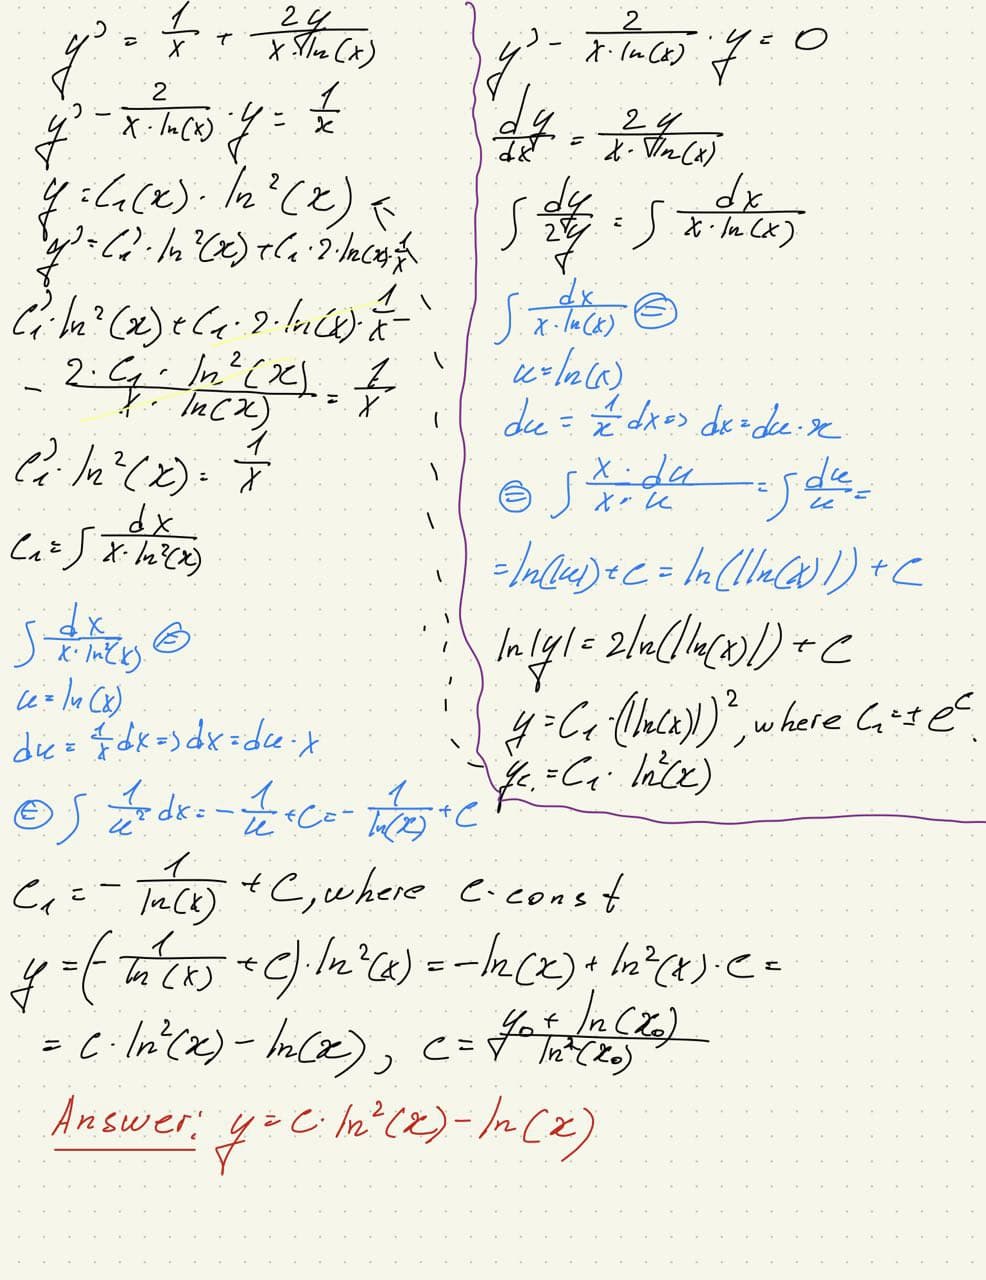 y' = 1/x + 2y/(x·ln(x))
y' - 2/(x·ln(x)) · y = 1/x
y = C₁(x) · ln²(x)
y' = C₁'·ln²(x) + C₁·2·ln(x)·1/x
C₁'·ln²(x) + C₁·2·ln(x)·1/x -
- (2·C₁·ln²(x))/(x·ln(x)) = 1/x
C₁'·ln²(x) = 1/x
C₁ = ∫ dx/(x·ln²(x))
∫ dx/(x·ln²(x)) ⊜
u = ln(x)
du = 1/x dx => dx = du·x
⊜ ∫ 1/u² dx = - 1/u + C = - 1/ln(x) + C
y' - 2/(x·ln(x)) · y = 0
dy/dx = 2y/(x·ln(x))
∫ dy/2y = ∫ dx/(x·ln(x))
∫ dx/(x·ln(x)) ⊜
u = ln(x)
du = 1/x dx => dx = du·x
⊜ ∫ (x·du)/(x·u) = ∫ du/u =
= ln(|u|) + C = ln(|ln(x)|) + C
ln|y| = 2ln(|ln(x)|) + C
y = C₁·(|ln(x)|)², where C₁ = ± e^C.
y_c. = C₁· ln²(x)
C₁ = - 1/ln(x) + C, where C-const
y = (- 1/ln(x) + C)·ln²(x) = -ln(x) + ln²(x)·C =
= C·ln²(x) - ln(x), C = (y₀ + ln(x₀))/ln²(x₀)
Answer: y = C·ln²(x) - ln(x)